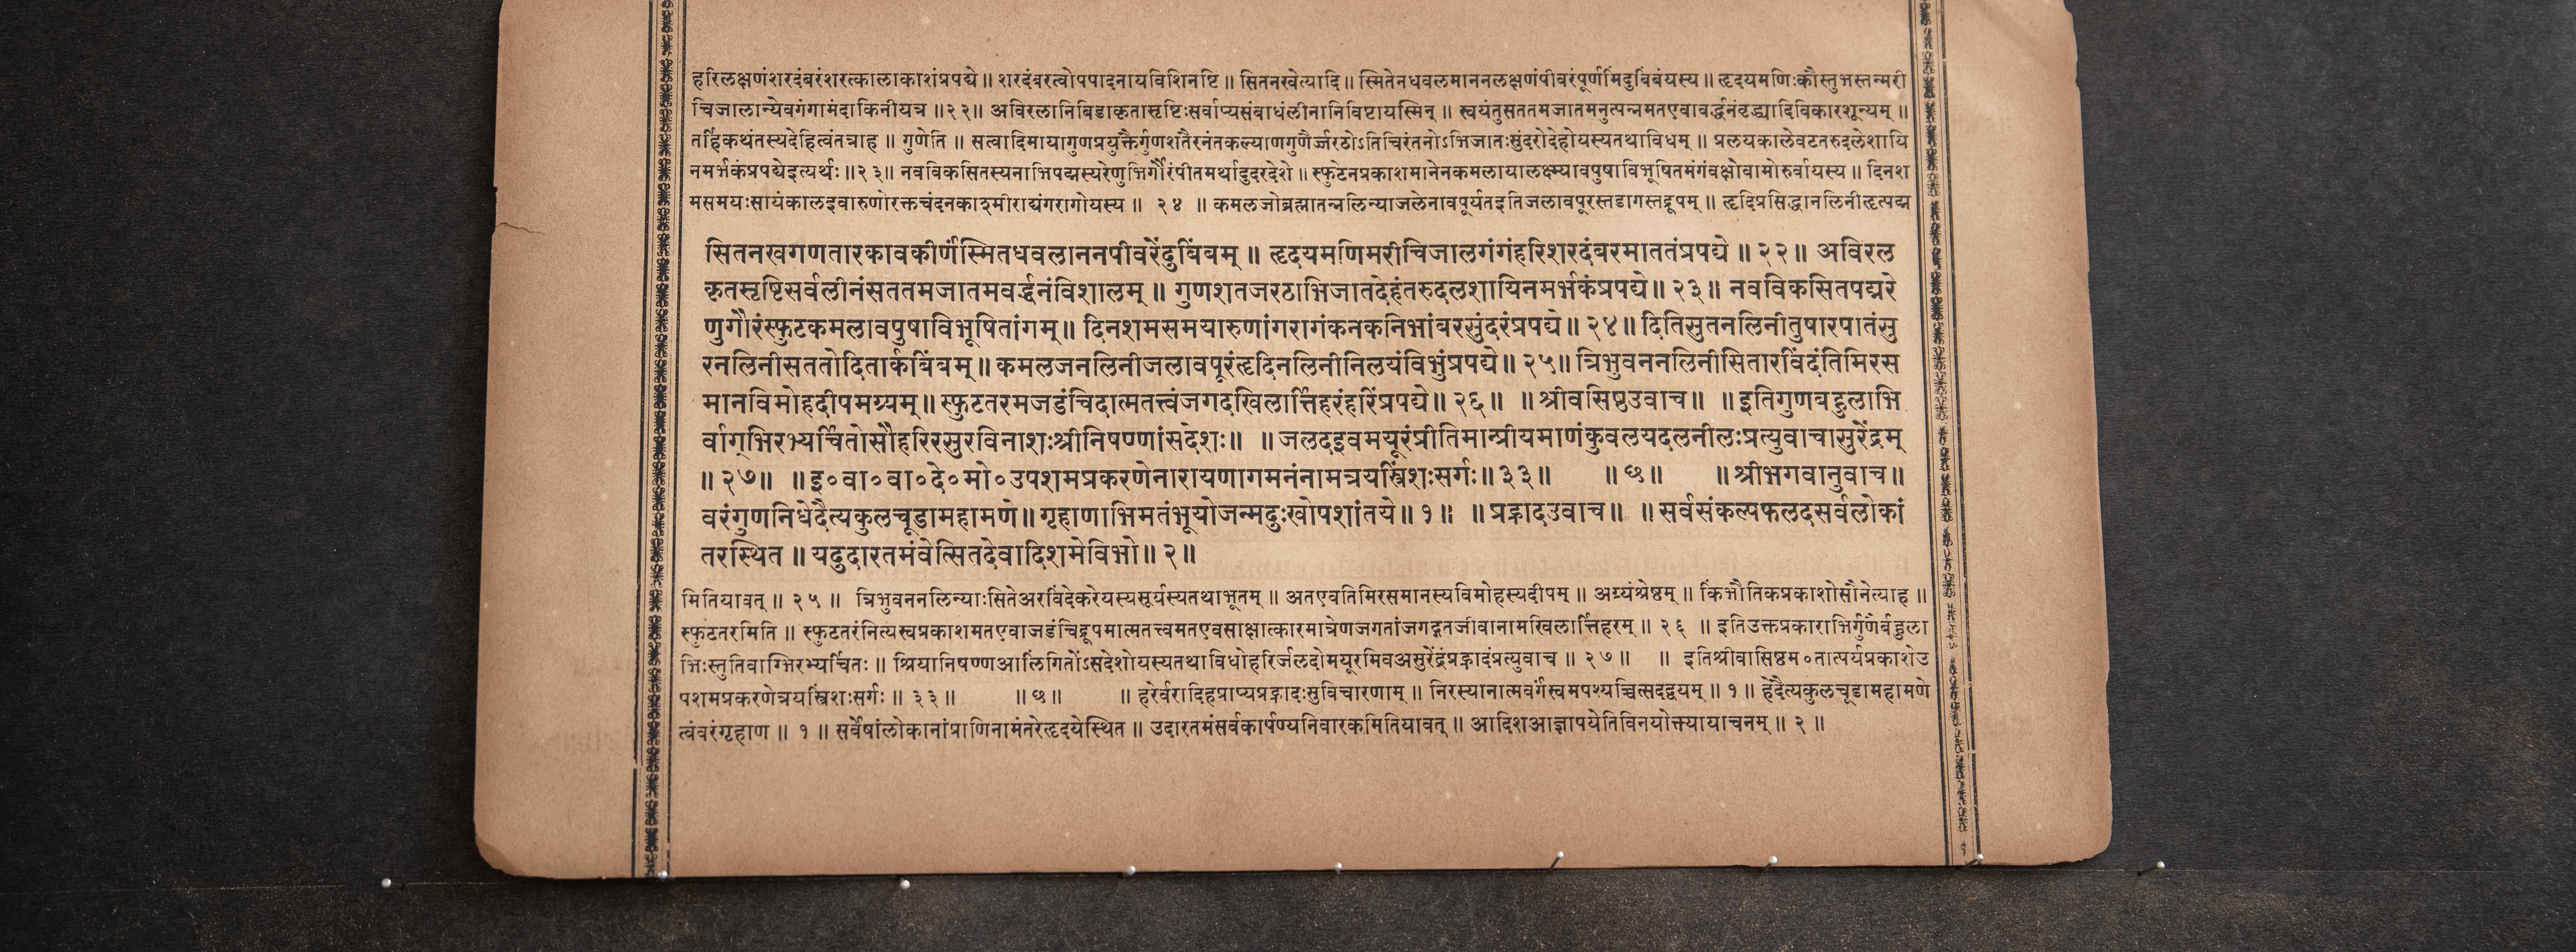 हरिलक्षणंशरदंबरंशरत्कालाकाशंप्रपद्ये ॥ शरदंबरत्वोपपादनायविशिनष्टि ॥ सितनखेत्यादि ॥ स्मितेनधवलमाननलक्षणंपीवरंपूर्णमिंदुबिंबंयस्य ॥ हृदयमणिःकौस्तुभस्तन्मरी
चिजालान्येवगंगामंदाकिनीयत्र ॥२२॥ अविरलानिबिडाकृतासृष्टिःसर्वाप्यसंबाधंलीनानिविष्टायस्मिन् ॥ स्वयंतुसततमजातमनुत्पन्नमतएवावर्द्धनंवृद्ध्यादिविकारशून्यम् ॥
तर्हिकथंतस्यदेहित्वंतत्राह ॥ गुणेति ॥ सत्वादिमायागुणप्रयुक्तैर्गुणशतैरनंतकल्याणगुणैर्जरठोऽतिचिरंतनोऽभिजातःसुंदरोदेहोयस्यतथाविधम् ॥ प्रलयकालेवटतरुदलेशायि
नमर्भकंप्रपद्येइत्यर्थः ॥२३॥ नवविकसितस्यनाभिपद्मस्यरेणुभिर्गौरंपीतमर्थादुदरदेशे ॥ स्फुटेनप्रकाशमानेनकमलायालक्ष्म्यावपुषाविभूषितमंगंवक्षोवामोरुर्वायस्य ॥ दिनश
मसमयःसायंकालइवारुणोरक्तचंदनकाश्मीराद्यंगरागोयस्य ॥ २४ ॥ कमलजोब्रह्मातन्नलिन्याजलेनावपूर्यतइतिजलावपूरस्तडागस्तद्रूपम् ॥ हृदिप्रसिद्धानलिनीहृत्पद्म
सितनखगणतारकावकीर्णंस्मितधवलाननपीवरेंदुबिंबम् ॥ हृदयमणिमरीचिजालगंगंहरिशरदंबरमाततंप्रपद्ये ॥ २२॥ अविरल
कृतसृष्टिसर्वलीनंसततमजातमवर्द्धनंविशालम् ॥ गुणशतजरठाभिजातदेहंतरुदलशायिनमर्भकंप्रपद्ये॥ २३॥ नवविकसितपद्मरे
णुगौरंस्फुटकमलावपुषाविभूषितांगम्॥ दिनशमसमयारुणांगरागंकनकनिभांबरसुंदरंप्रपद्ये॥ २४॥ दितिसुतनलिनीतुषारपातंसु
रनलिनीसततोदितार्कबिंबम्॥ कमलजनलिनीजलावपूरंहृदिनलिनीनिलयंविभुंप्रपद्ये॥ २५॥ त्रिभुवननलिनीसितारविंदंतिमिरस
मानविमोहदीपमग्र्यम्॥ स्फुटतरमजडंचिदात्मतत्त्वंजगदखिलार्त्तिहरंहरिंप्रपद्ये॥ २६॥ ॥ श्रीवसिष्ठउवाच॥ ॥ इतिगुणबहुलाभि
र्वाग्भिरभ्यर्चितोसौहरिरसुरविनाशःश्रीनिषण्णांसदेशः॥ ॥ जलदइवमयूरंप्रीतिमान्प्रीयमाणंकुवलयदलनीलःप्रत्युवाचासुरेंद्रम्
॥ २७॥ ॥ इ०वा०वा०दे०मो०उपशमप्रकरणेनारायणागमनंनामत्रयस्त्रिंशःसर्गः॥ ३३॥ ॥ छ॥ ॥ श्रीभगवानुवाच॥
वरंगुणनिधेदैत्यकुलचूडामहामणे॥ गृहाणाभिमतंभूयोजन्मदुःखोपशांतये॥ १॥ ॥ प्रह्लादउवाच॥ ॥ सर्वसंकल्पफलदसर्वलोकां
तरस्थित ॥ यदुदारतमंवेत्सितदेवादिशमेविभो॥ २॥
मितियावत् ॥ २५ ॥ त्रिभुवननलिन्याःसितेअरविंदेकरेयस्यसूर्यस्यतथाभूतम् ॥ अतएवतिमिरसमानस्यविमोहस्यदीपम् ॥ अग्र्यंश्रेष्ठम् ॥ किंभौतिकप्रकाशोसौनेत्याह ॥
स्फुटतरमिति ॥ स्फुटतरंनित्यस्वप्रकाशमतएवाजडंचिद्रूपमात्मतत्त्वमतएवसाक्षात्कारमात्रेणजगतांजगद्गतजीवानामखिलार्त्तिहरम् ॥ २६ ॥ इतिउक्तप्रकाराभिर्गुणैर्बहुला
भिःस्तुतिवाग्भिरभ्यर्चितः ॥ श्रियानिषण्णआलिंगितोंऽसदेशोयस्यतथाविधोहरिर्जलदोमयूरमिवअसुरेंद्रंप्रह्लादंप्रत्युवाच ॥ २७ ॥ ॥ इतिश्रीवासिष्ठम०तात्पर्यप्रकाशेउ
पशमप्रकरणेत्रयस्त्रिंशःसर्गः ॥ ३३ ॥ ॥ छ ॥ ॥ हरेर्वरादिहप्राप्यप्रह्लादःसुविचारणाम् ॥ निरस्यानात्मवर्गंस्वमपश्यच्चित्सदद्वयम् ॥ १ ॥ हेदैत्यकुलचूडामहामणे
त्वंवरंगृहाण ॥ १ ॥ सर्वेषांलोकानांप्राणिनामंतरेहृदयेस्थित ॥ उदारतमंसर्वकार्पण्यनिवारकमितियावत् ॥ आदिशआज्ञापयेतिविनयोक्त्यायाचनम् ॥ २ ॥